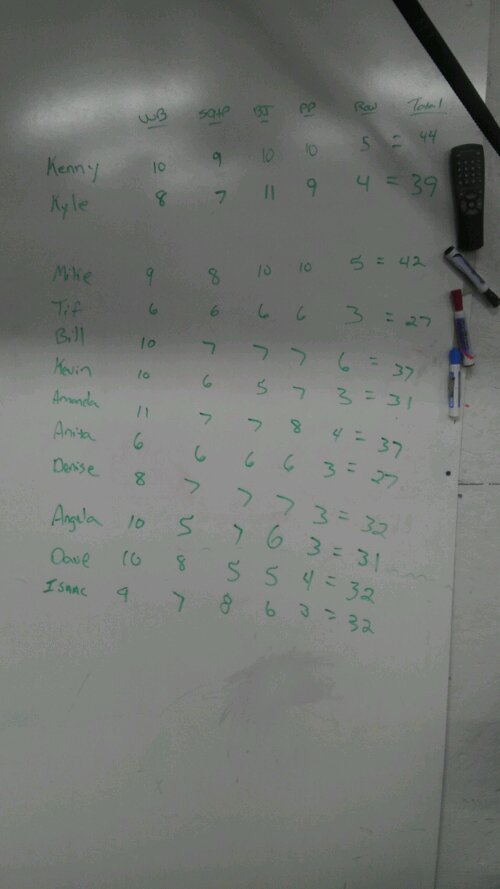 WB SDHP BJ PP Row Total
Kenny 10 9 10 10 5 = 44
Kyle 8 7 11 9 4 = 39
Mike 9 8 10 10 5 = 42
Tif 6 6 6 6 3 = 27
Bill 10 7 7 7 6 = 37
Kevin 10 6 5 7 3 = 31
Amanda 11 7 7 8 4 = 37
Anita 6 6 6 6 3 = 27
Denise 8 7 7 7 3 = 32
Angela 10 5 7 6 3 = 31
Dave 10 8 5 5 4 = 32
Isaac 9 7 8 6 3 = 32